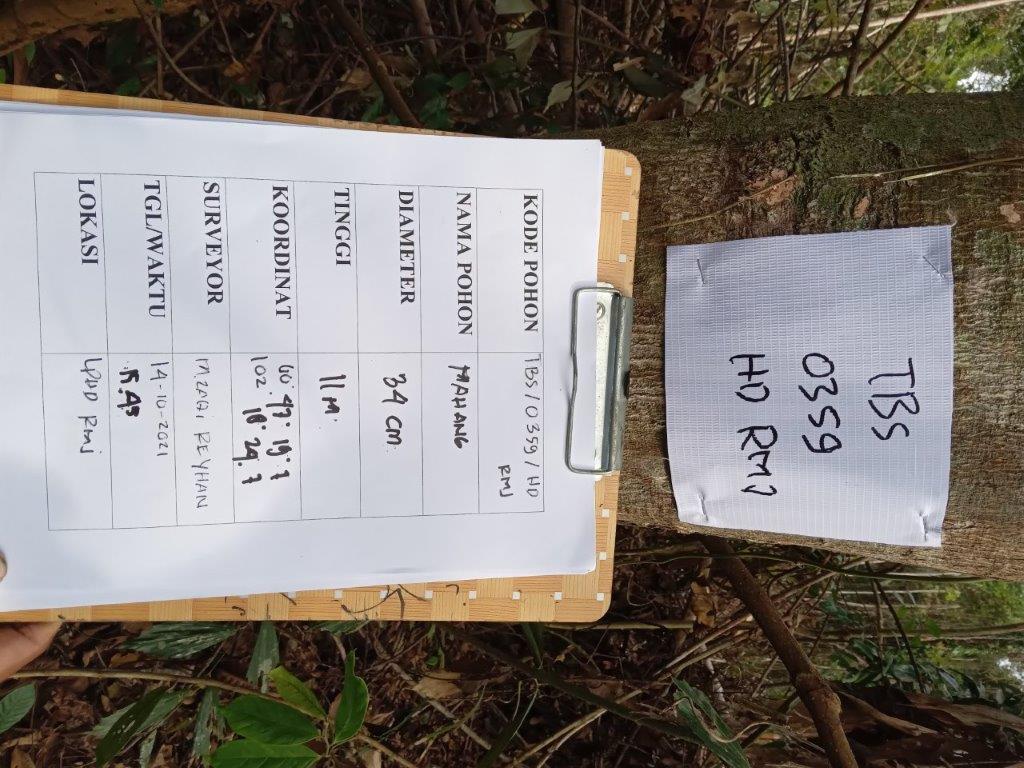 TBS
0359
HD RMJ
KODE POHON TBS/0359/HD
RMJ
NAMA POHON MAHANG
DIAMETER 34 cm
TINGGI 11 M
KOORDINAT 00° 47° 19.7
102° 18° 29.7
SURVEYOR M.ZAQI REYHAN
TGL/WAKTU 14-10-2021
15.45
LOKASI LPHD RMJ